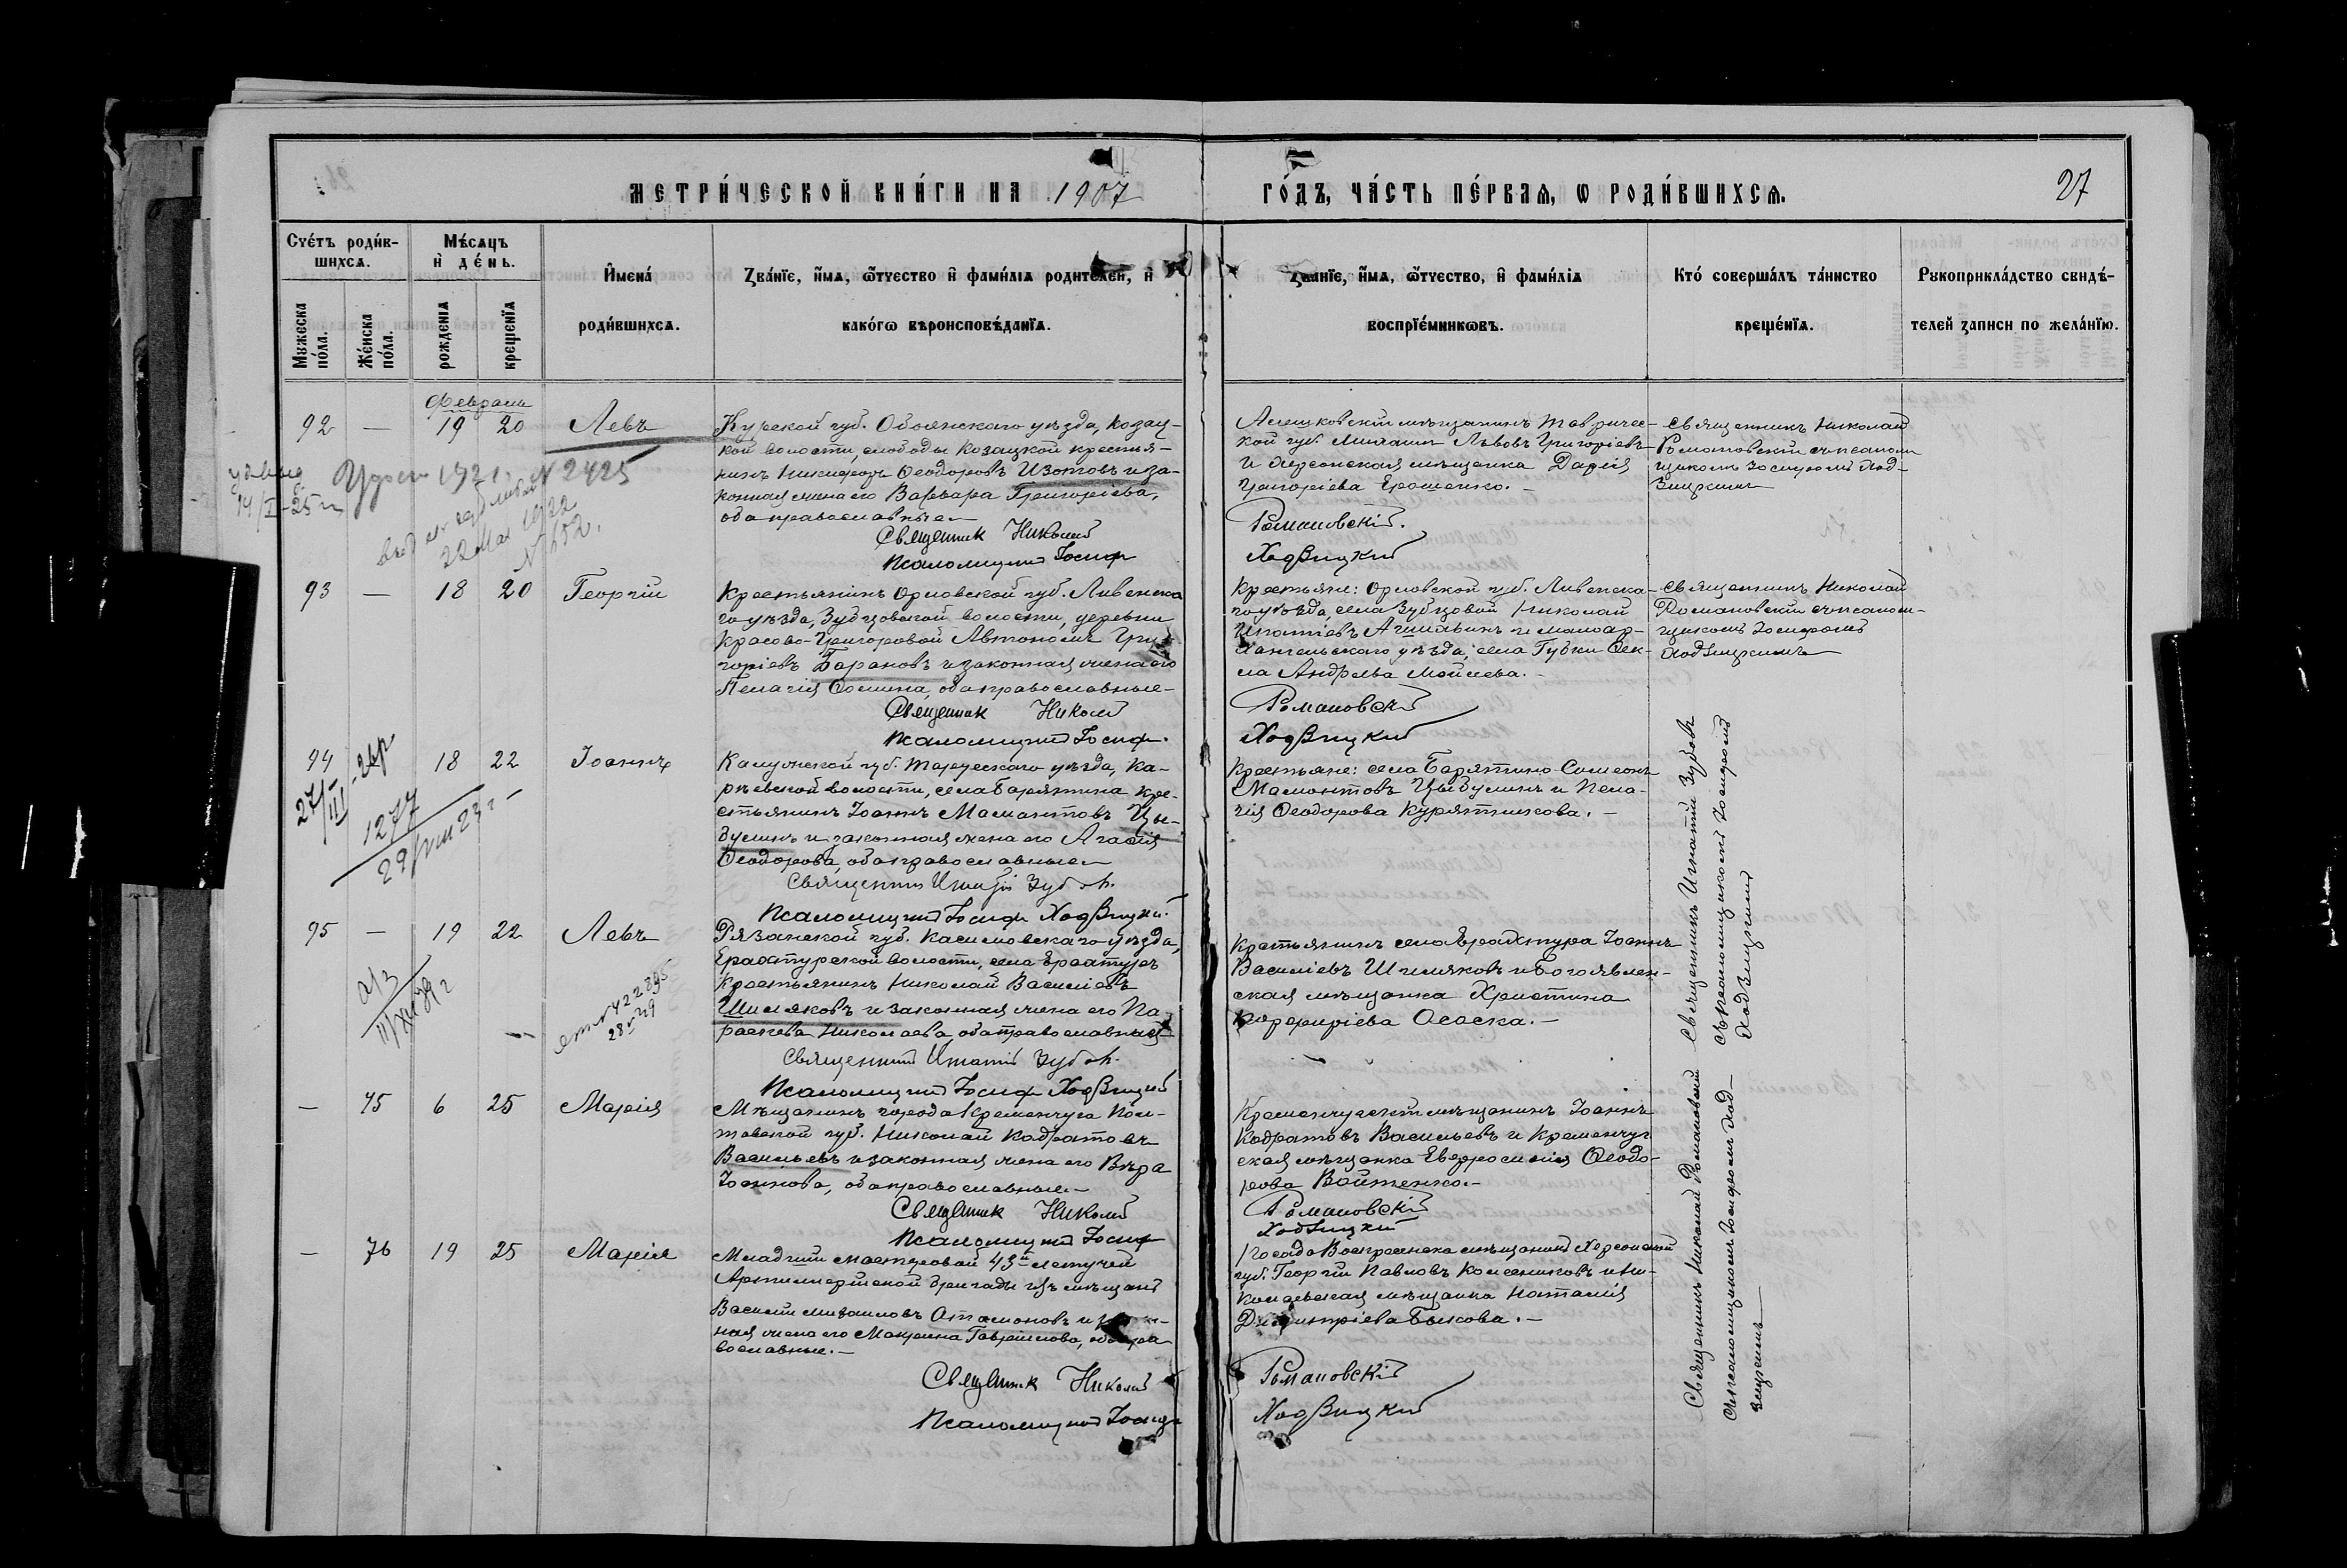 МЕТРИ́ЧЕСКОЙ КНИ́ГИ НА 1907
ГО́ДЪ, ЧА́СТЬ ПЕ́РВАѦ, Ѡ РОДИ́ВШИХСѦ.
27
Сче́тъ роди́в-
шихсѧ.
Мужеска по́ла.
Же́нска по́ла.
Мѣ́сѧцъ
и҆ де́нь.
рожденїѧ
крещенїѧ
И҆мена́
роди́вшихсѧ.
Зва́нїе, и҆́мѧ, ѻ҆́тчество и҆ фами́лїѧ родителей, и҆
како́гѡ вѣроисповѣ́данїѧ.
Зва́нїе, и҆́мѧ, ѻ҆́тчество, и҆ фами́лїѧ
воспрїе́мникѡвъ.
Кто́ соверша́лъ та́инство
креще́нїѧ.
Рꙋкоприкла́дство свидѣ́-
телей записи по жела́нїю.
Февраль
92 — 19 20 Левъ
Курской губ. Обоянскаго уѣзда, Козац-
кой волости, слободы Козацкой крестья-
нинъ Никифоръ Ѳеодоровъ Изотовъ и за-
конная жена его Варвара Григоріева,
оба православные
Священник Николай
Псаломщикъ Іосиф
Алешковскій мѣщанинъ Тавричес-
кой губ. Михаилъ Львовъ Григорьевъ
и херсонская мѣщанка Дарія
Григоріева Ерошенко. —
Романовскій.
Ходзицкій
Священникъ Николай
Романовскій съ псалом-
щикомъ Іосифомъ Ход-
зицкимъ
14/I-25 г
1921 г. № 2425
22 мая 1922
№ 1652.
93 — 18 20 Георгій
Крестьянинъ Орловской губ. Ливенска
го уѣзда, Зубцовской волости, деревни
Красово-Григоровой Автономъ Гри-
горіевъ Барановъ и законная жена его
Пелагія Ѳомина, оба православные —
Священник Николай
Псаломщикъ Іосиф.
Крестьяне: Орловской губ. Ливенска-
го уѣзда, села Зубцовой Николай
Игнатіевъ и Малоар-
хангельскаго уѣзда, села Губки Ѳек-
ла Андреева Моисеева. —
Романовскій
Ходзицкій
Священникъ Николай
Романовскій съ псалом-
щикомъ Іосифомъ
Ходзицкимъ
94 18 22 Іоаннъ
27/III-26 г
1277
29/VIII 23 г —
Калужской губ. Тарусскаго уѣзда, Ка-
рѣевской волости, села Барятина кре-
стьянинъ Іоаннъ Мамонтовъ Цы-
булинъ и законная жена его Агафія
Ѳеодорова, оба православные
Священникъ Игнатій Зубовъ.
Псаломщикъ Іосиф Ходзицкій.
Крестьяне: села Барятино Симеонъ
Мамонтовъ Цыбулинъ и Пела-
гія Ѳеодорова Курятникова. —
95 — 19 22 Левъ
№ 422895
Рязанской губ. Касимовскаго уѣзда,
Ерахтурской волости, села Ерахтуръ
крестьянинъ Николай Васильевъ
Шишляковъ и законная жена его Па-
раскева Николаева, оба православные
Священникъ Игнатій Зубовъ.
Псаломщикъ Іосиф Ходзицкій
Крестьянинъ села Ерахтура Іоаннъ
Василіевъ Шишляковъ и Богоявлен-
ская мѣщанка Христина
Порфиріева Ососка. —
Священникъ Игнатій Зубовъ
съ псаломщикомъ Іосифомъ
Ходзицкимъ
— 75 6 25 Марія
Мѣщанинъ города Кременчуга Пол-
тавской губ. Николай Кодратовъ
Васильевъ и законная жена его Вѣра
Іоаннова, оба православные —
Священник Николай
Псаломщикъ Іосиф
Кременчугскій мѣщанинъ Іоаннъ
Кодратовъ Васильевъ и Кременчуг
ская мѣщанка Евфросинія Ѳеодо-
рова Войтенко. —
Романовскій
Ходзицкій
— 76 19 25 Марія
Младшій мастеровой 45й летучей
Артиллерійской бригады изъ мѣщанъ
Василій Михаиловъ Атамановъ и закон-
ная жена его Макрина Гавриилова, оба пра-
вославные. —
Священник Николай
Псаломщикъ Іосиф
Посада Воскресенска мѣщанинъ Херсонской
губ. Георгій Павловъ Колесниковъ и Ни-
колаевская мѣщанка Наталія
Димитріева Быкова. —
Романовскій
Ходзицкій
Священникъ Николай Романовскій
съ псаломщикомъ Іосифомъ Ход-
зицкимъ